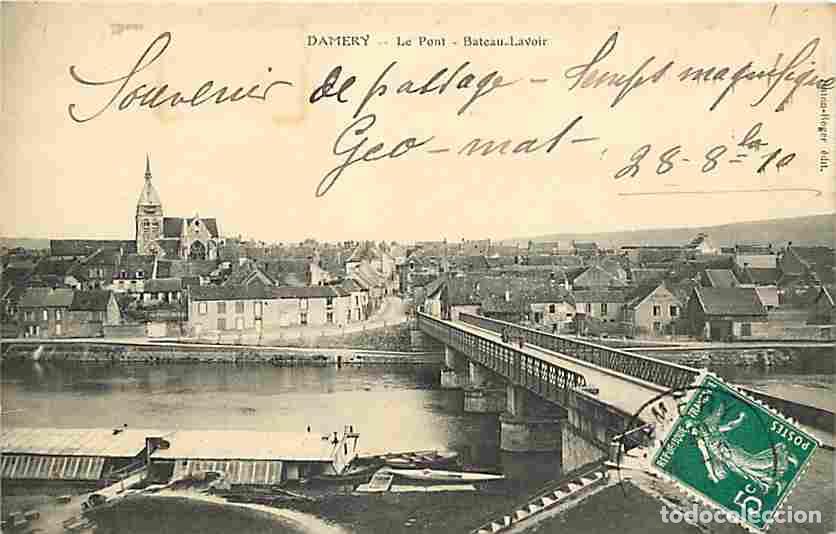 DAMERY -- Le Pont - Bateau-Lavoir
Souvenir de passage - Temps magnifique
Geo-mat-
28-8-10
édit.
REPUBLIQUE FRANÇAISE
POSTES
5c
todocoleccion